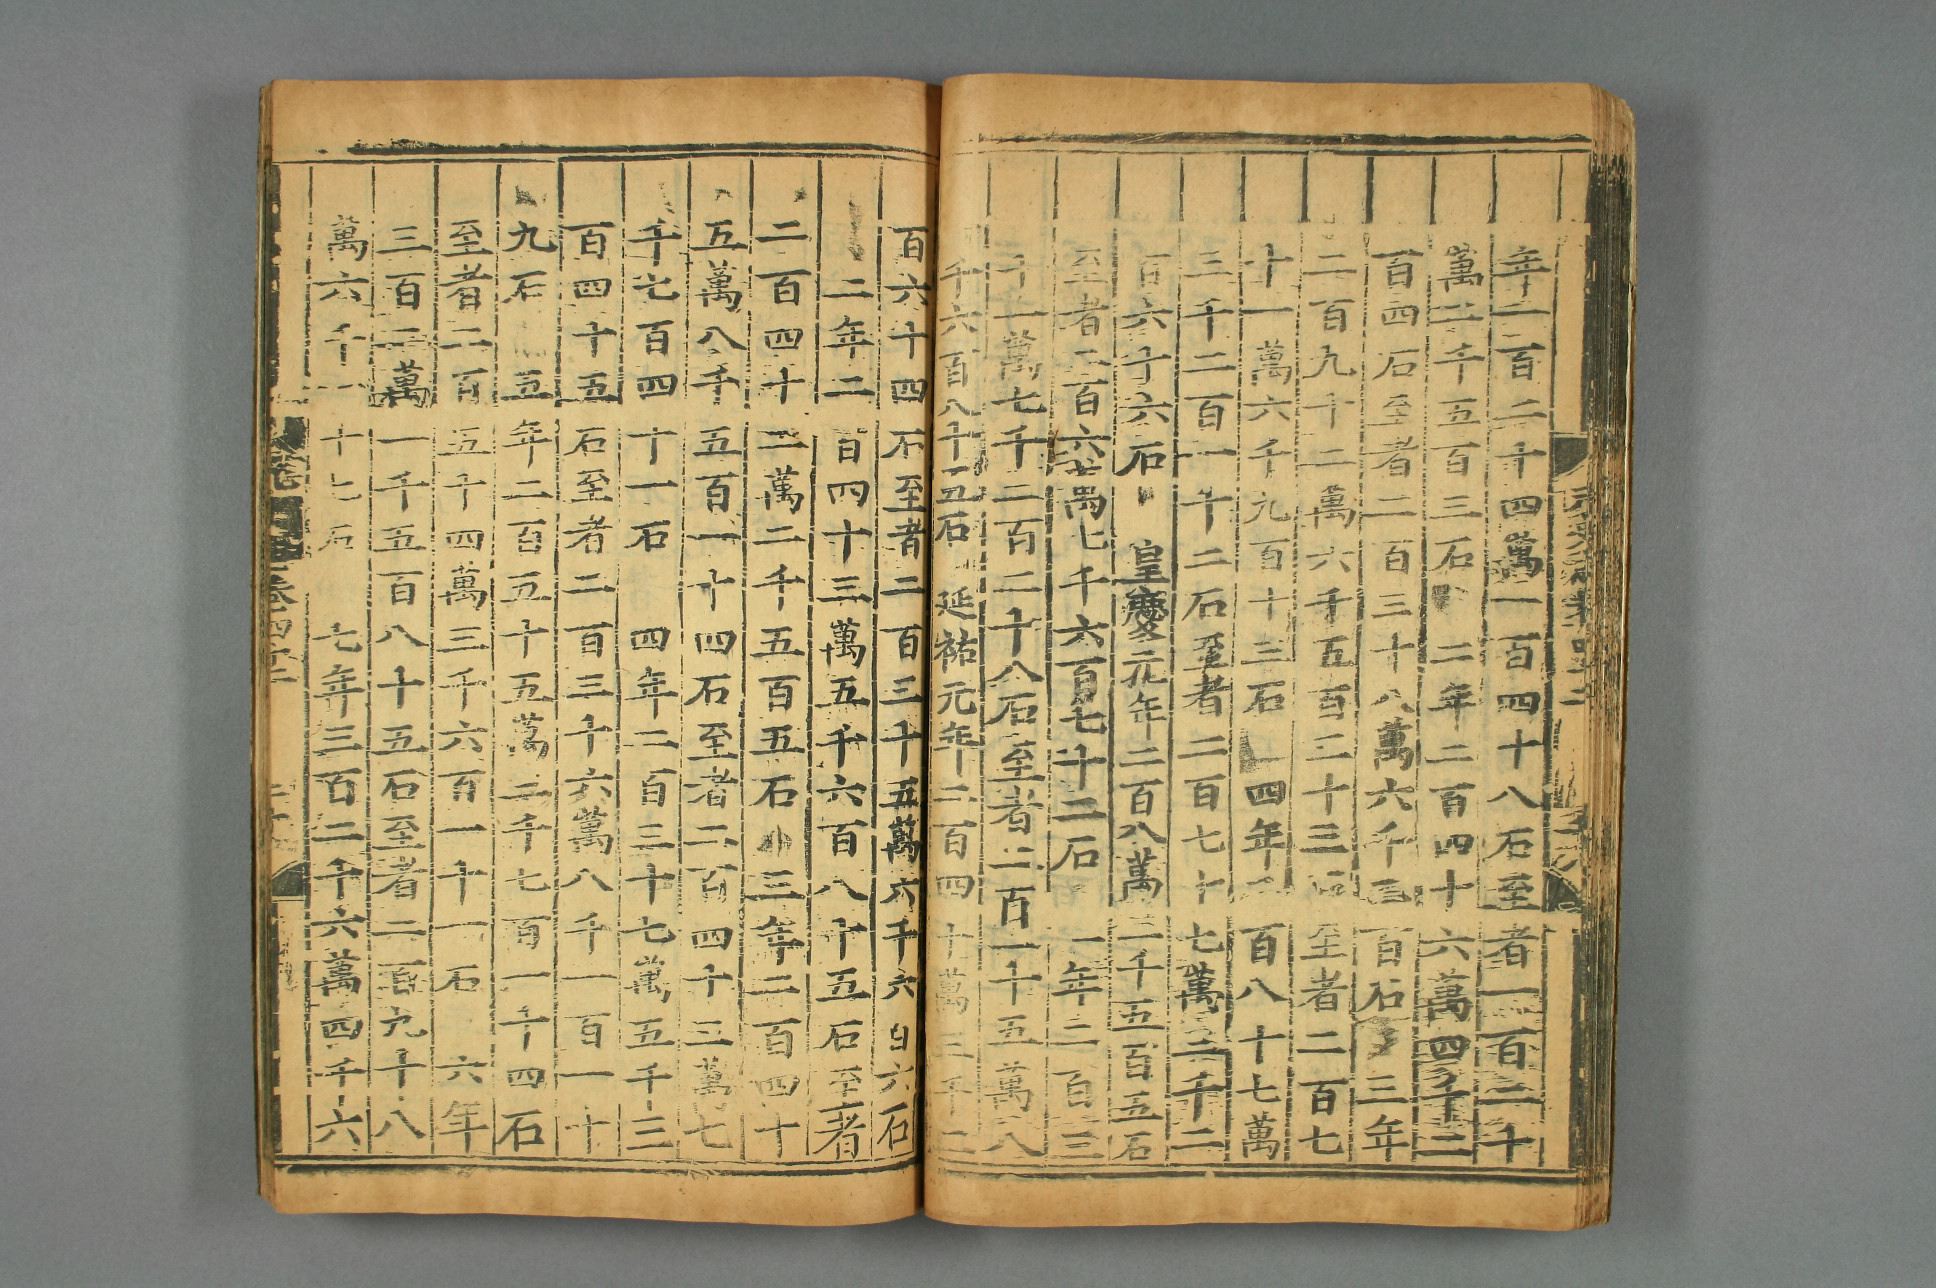 年二百二十四萬一百四十八石至者一百三十
萬二千五百三石 二年二百四十六萬四千二
百四石至者二百三十八萬六千三百石 三年
二百九十二萬六千五百三十三石至者二百七
十一萬六千九百十三石 四年二百八十七萬
三千二百一十二石至者二百七十七萬三千二
百六十六石 皇慶元年二百八萬三千五百五石
至者二百六萬七千六百七十二石 二年二百三
十一萬七千二百二十八石至者二百一十五萬八
千六百八十五石 延祐元年二百四十萬三千二
百六十四石至者二百三十五萬六千六百六石
二年二百四十三萬五千六百八十五石至者
二百四十二萬二千五百五石 三年二百四十
五萬八千五百一十四石至者二百四十三萬七
千七百四十一石 四年二百三十七萬五千三
百四十五石至者二百三十六萬八千一百一十
九石 五年二百五十五萬三千七百一十四石
至者二百五十四萬三千六百一十一石 六年
三百二萬一千五百八十五石至者二百九十八
萬六千一十七石 七年三百二十六萬四千六